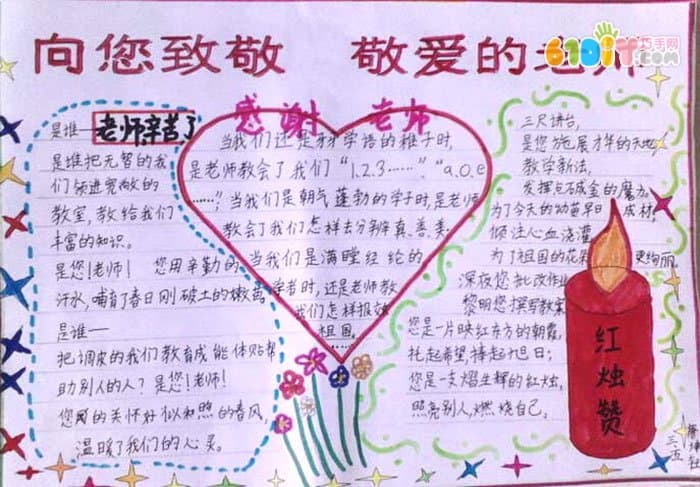 向您致敬 敬爱的老师
6101T.com
巧手网
老师辛苦了
是谁—
是谁把无智的我
们领进宽敞的
教室,教给我们
丰富的知识。
是您!老师! 您用辛勤的
汗水,哺育了春日刚破土的嫩苗
是谁—
把调皮的我们教育成能体贴帮
助别人的人?是您!老师!
您的关怀好似和煦的春风,
温暖了我们的心灵。
感谢 老师
当我们还是牙牙学语的稚子时,
是老师教会了我们“1.2.3……”“a.o.e
……”!当我们是朝气蓬勃的学子时,是老师
教会了我们怎样去分辨真、善、美.
当我们是满腔经纶的
学者时,还是老师教
我们怎样报效
祖国。
……
三尺讲台,
是您施展才华的天地,
教学新法,
发挥点石成金的魔力。
为了今天的幼苗早日成材,
倾注心血浇灌
为了祖国的花朵更绚丽。
深夜您批改作业
黎明您撰写教案
您是一片映红东方的朝霞,
托起希望捧起旭日;
您是一支熠生辉的红烛,
照亮别人,燃烧自己。
红烛赞
三.五